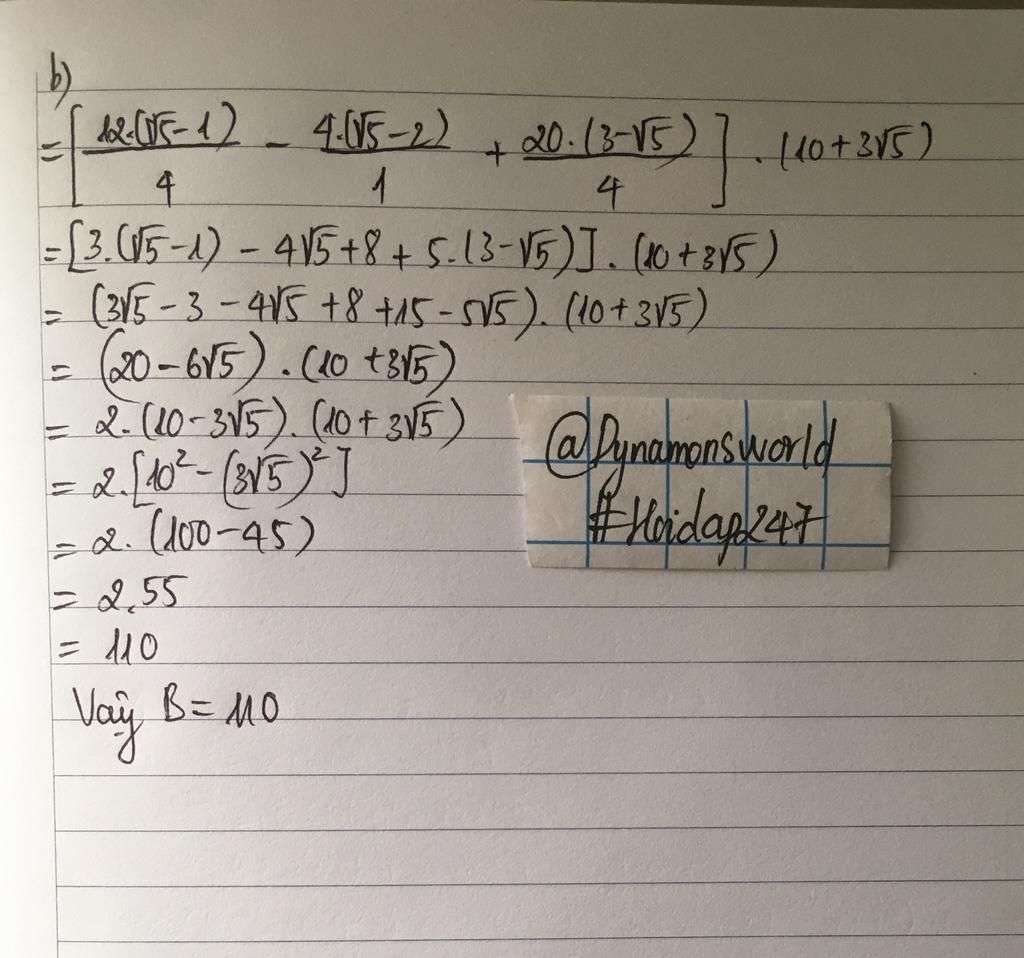 b)
= [ 12.(√5-1)/4 - 4.(√5-2)/1 + 20.(3-√5)/4 ] . (10+3√5)
= [3.(√5-1) - 4√5+8 + 5.(3-√5)] . (10+3√5)
= (3√5 - 3 - 4√5 +8 +15 - 5√5) . (10+3√5)
= (20-6√5) . (10 +3√5)
= 2.(10-3√5) . (10+3√5)
= 2.[10² - (3√5)²]
= 2. (100-45)
= 2.55
= 110
Vaỵ̂ B = 110
@Dynamonsworld
#Hoidap247